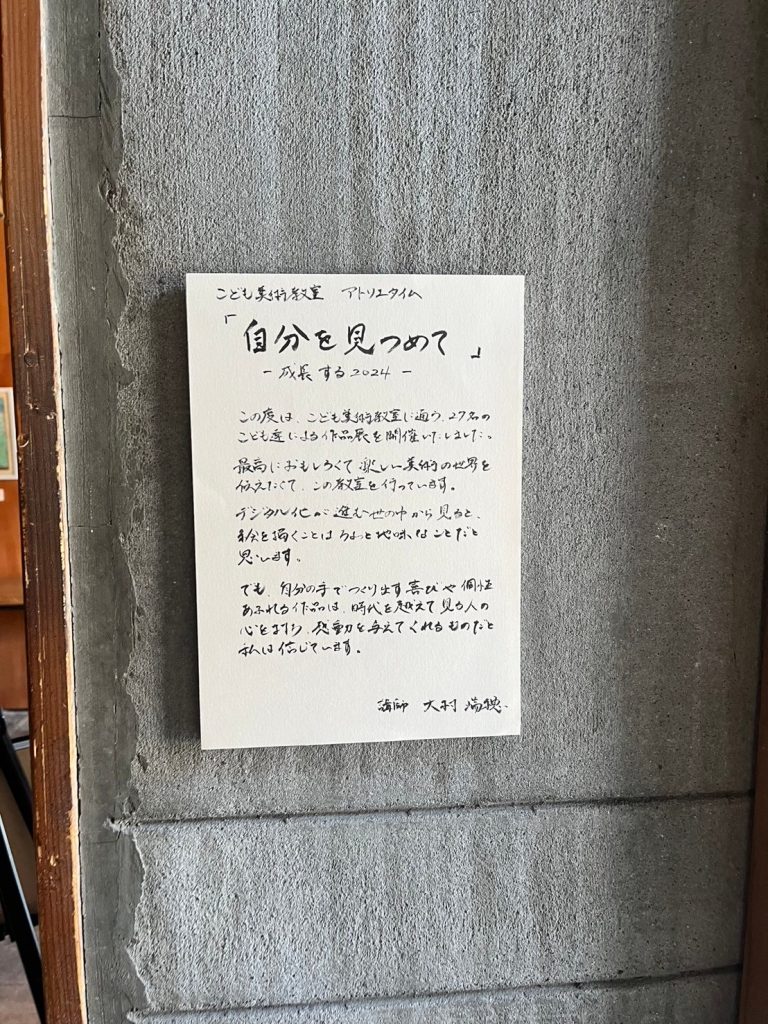 こども美術教室　アトリエタイム
「自分を見つめて」
－成長する2024－
この度は、こども美術教室に通う、27名の
こども達による作品展を開催いたしました。
最高におもしろくて楽しい美術の世界を
伝えたくて、この教室を行っています。
デジタル化が進む世の中から見ると、
絵を描くことはちょっと地味なことだと
思います。
でも、自分の手でつくり出す喜びや個性
あふれる作品は、時代を越えて見る人の
心をまもり、感動を与えてくれるものだと
私は信じています。
講師　大村